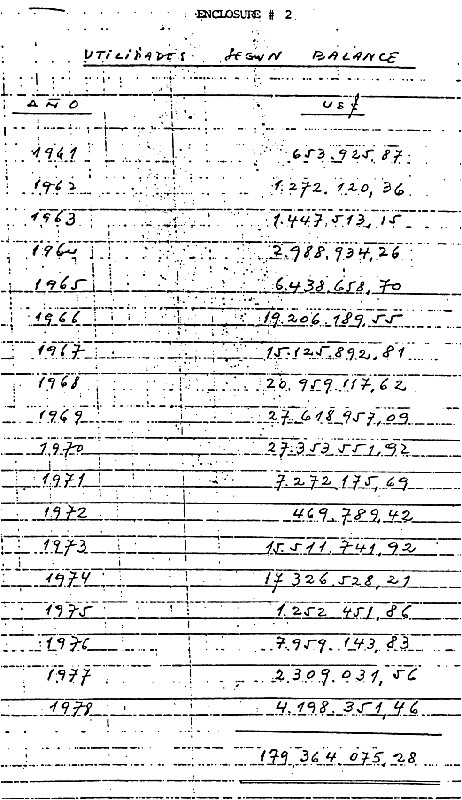 ENCLOSURE # 2
UTILIDADES SEGUN BALANCE
AÑO US$
1961 653.925,87
1962 1.272.120,36
1963 1.447.513,15
1964 2.988.934,26
1965 6.438.658,70
1966 19.206.189,55
1967 15.125.892,81
1968 20.959.117,62
1969 27.618.957,09
1970 27.353.551,92
1971 7.272.175,69
1972 469.789,42
1973 15.511.741,92
1974 17.326.528,21
1975 1.252.451,86
1976 7.959.143,83
1977 2.309.031,56
1978 4.198.351,46
179.364.075,28